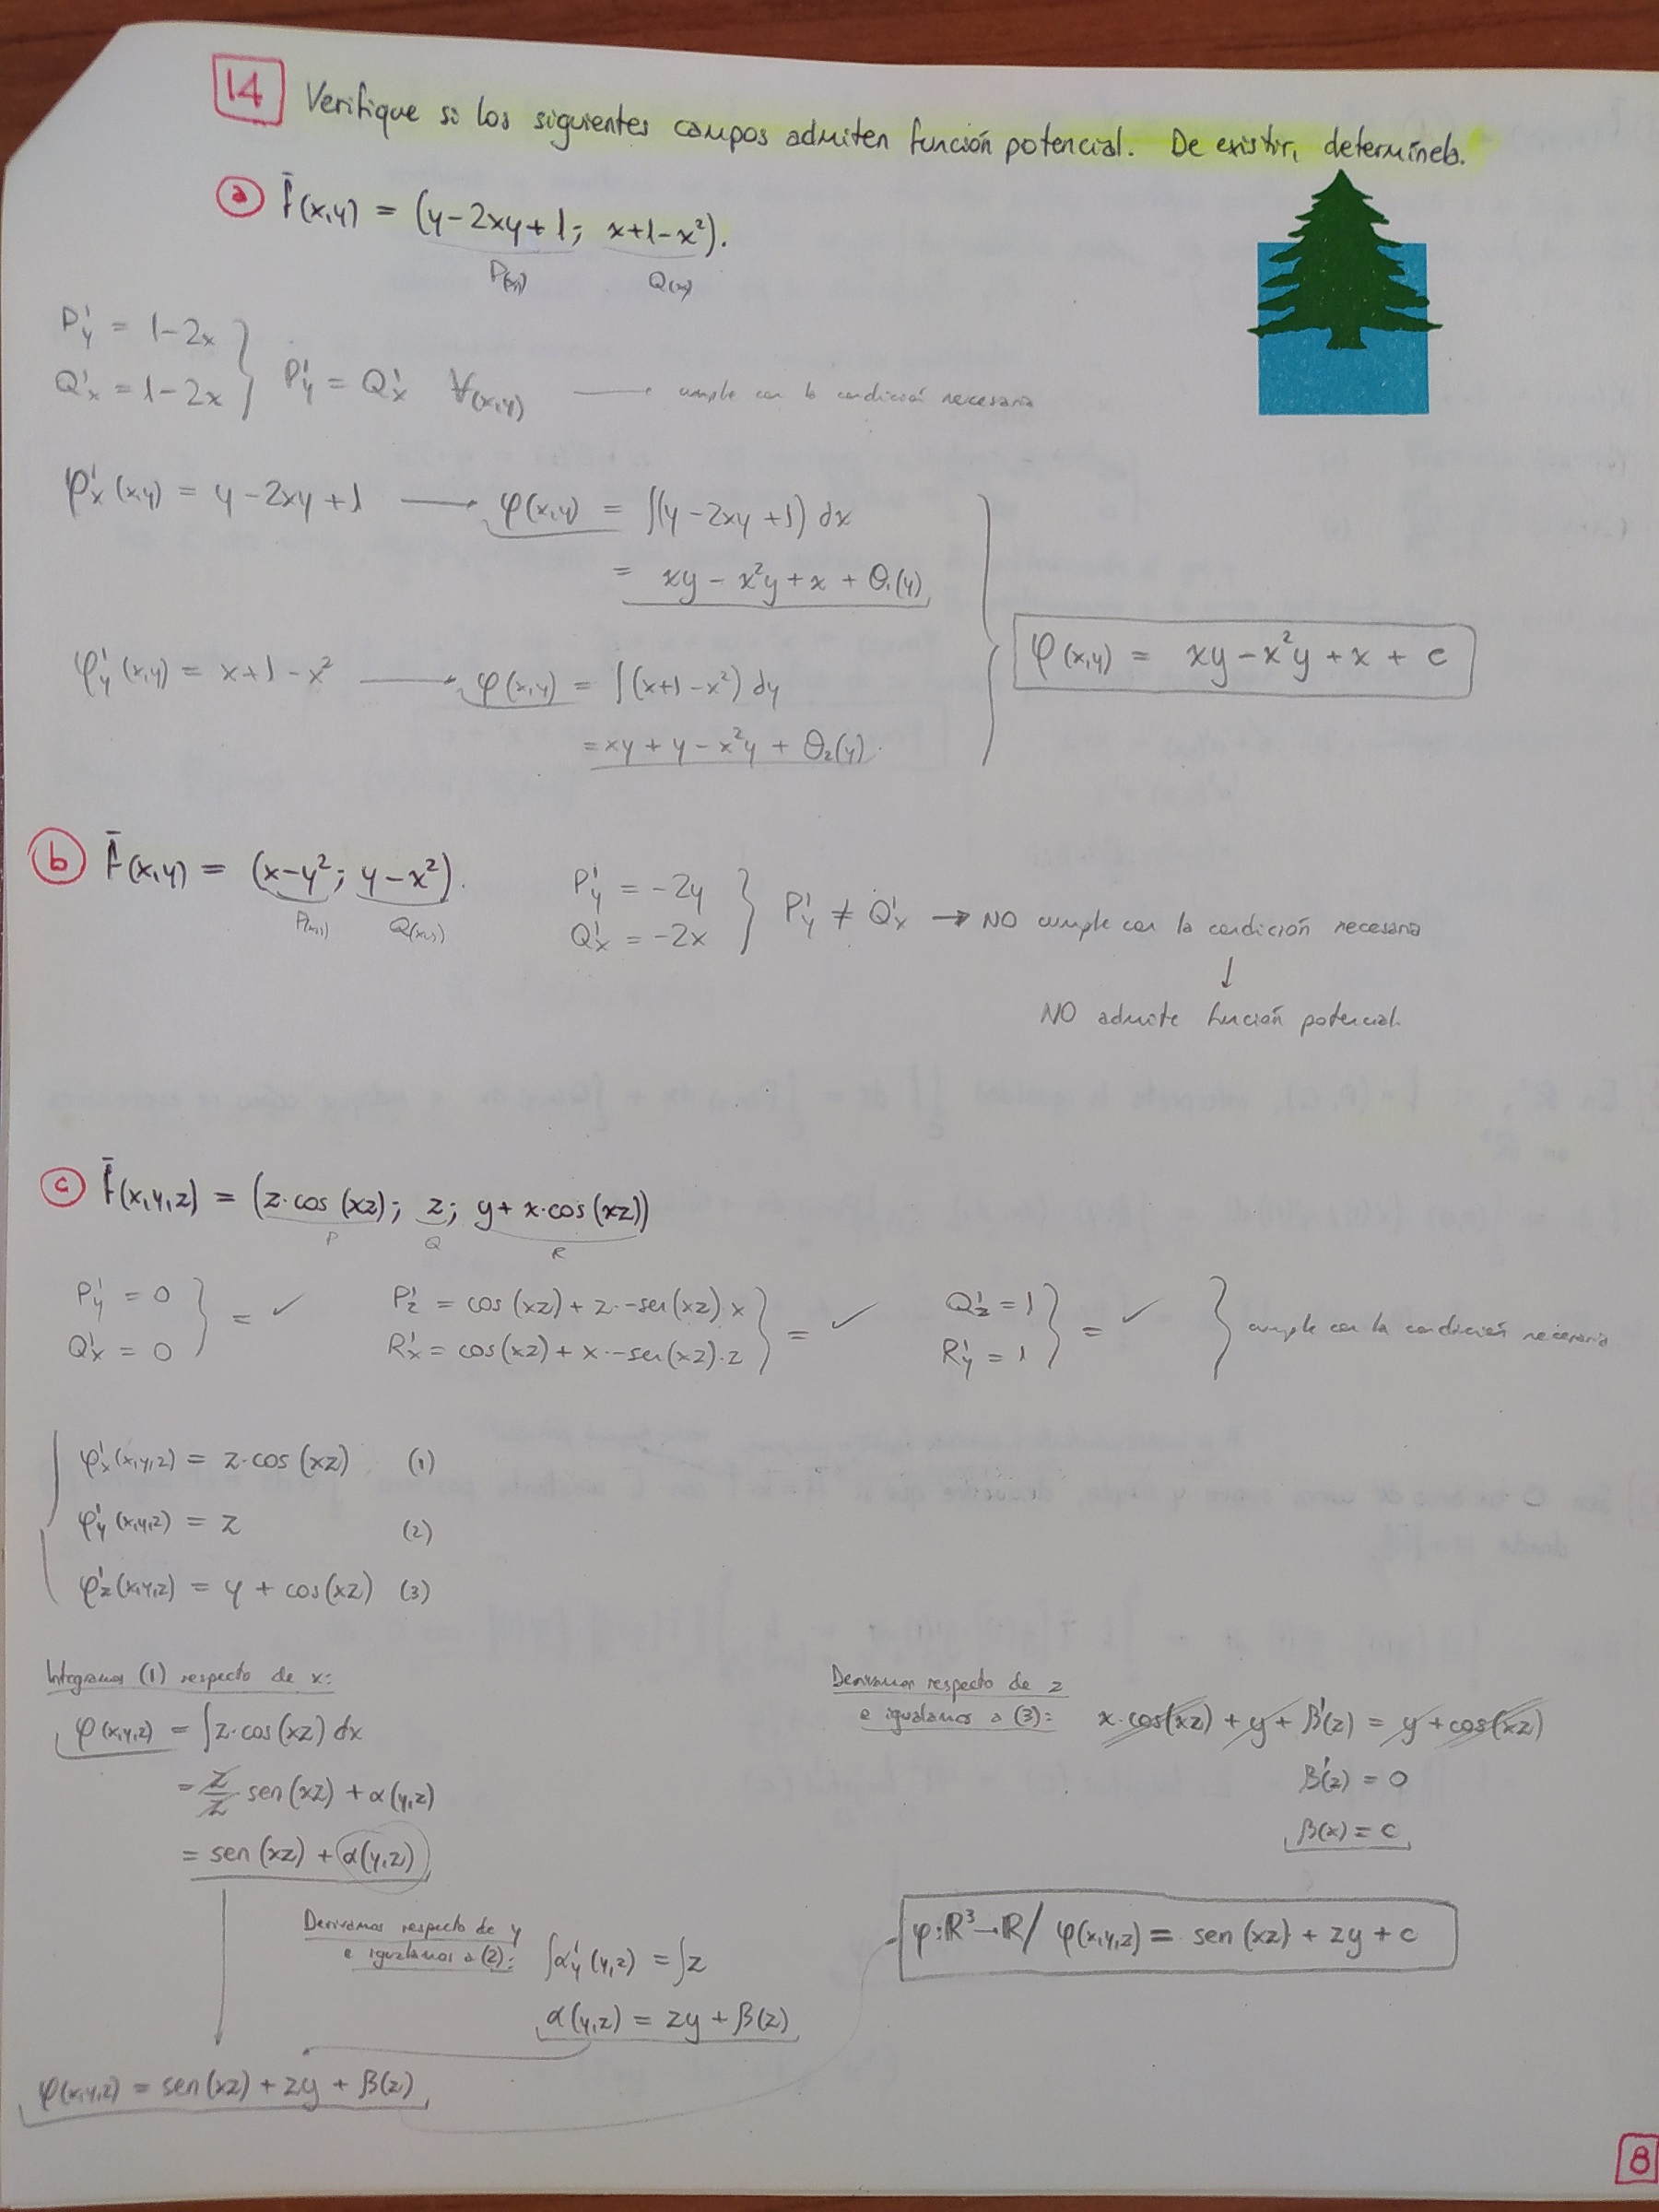 14 Verifique si los siguientes campos admiten función potencial. De existir, determínela.
a f̄(x,y) = (y-2xy+1; x+1-x²).
P(x,y) Q(x,y)
P'y = 1-2x
Q'x = 1-2x } P'y = Q'x ∀(x,y) → cumple con la condición necesaria
φ'x (x,y) = y-2xy+1 → φ(x,y) = ∫(y-2xy+1) dx
= xy - x²y + x + θ₁(y)
φ(x,y) = xy - x²y + x + c
φ'y (x,y) = x+1-x² → φ(x,y) = ∫(x+1-x²) dy
= xy + y - x²y + θ₂(y)
b f̄(x,y) = (x-y²; y-x²).
P(x,y) Q(x,y)
P'y = -2y
Q'x = -2x } P'y ≠ Q'x → NO cumple con la condición necesaria
↓
NO admite función potencial.
c f̄(x,y,z) = (z·cos (xz); z; y + x·cos (xz))
P Q R
P'y = 0
Q'x = 0 } = ✓
P'z = cos (xz) + z·-sen(xz)·x
R'x = cos(xz) + x·-sen(xz)·z } = ✓
Q'z = 1
R'y = 1 } = ✓ } cumple con la condición necesaria
φ'x (x,y,z) = z·cos (xz) (1)
φ'y (x,y,z) = z (2)
φ'z (x,y,z) = y + cos(xz) (3)
Integramos (1) respecto de x:
φ(x,y,z) = ∫z·cos(xz) dx
= z/z · sen (xz) + α(y,z)
= sen (xz) + α(y,z)
Derivamos respecto de y
e igualamos a (2): ∫α'y (y,z) = ∫z
α(y,z) = zy + β(z)
φ(x,y,z) = sen(xz) + zy + β(z)
Derivamos respecto de z
e igualamos a (3): x·cos(xz) + y + β'(z) = y + cos(xz)
β'(z) = 0
β(x) = c
φ:ℝ³→ℝ/ φ(x,y,z) = sen (xz) + zy + c
8